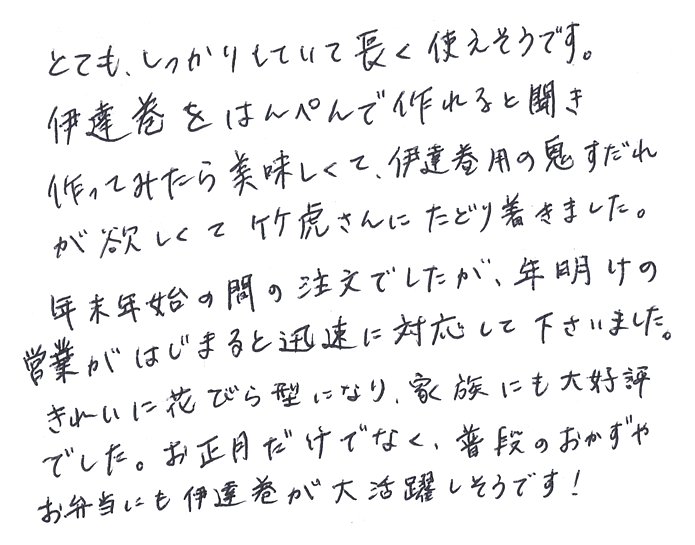 とても、しっかりしていて長く使えそうです。
伊達巻をはんぺんで作れると聞き
作ってみたら美味しくて、伊達巻用の鬼すだれ
が欲しくて竹虎さんにたどり着きました。
年末年始の間の注文でしたが、年明けの
営業がはじまると迅速に対応して下さいました。
きれいに花びら型になり、家族にも大好評
でした。お正月だけでなく、普段のおかずや
お弁当にも伊達巻が大活躍しそうです！